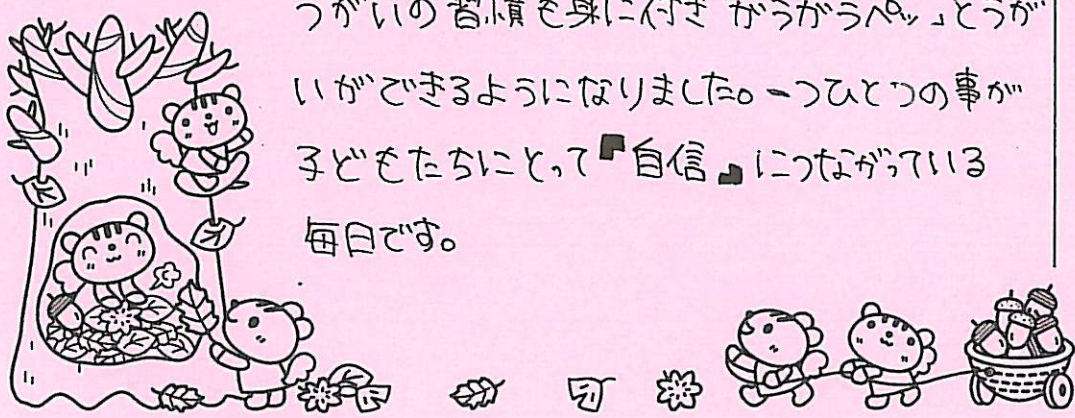 うがいの習慣も身に付き がらがらペッ」とうが
いができるようになりました。一つひとつの事が
子どもたちにとって『自信』につながっている
毎日です。